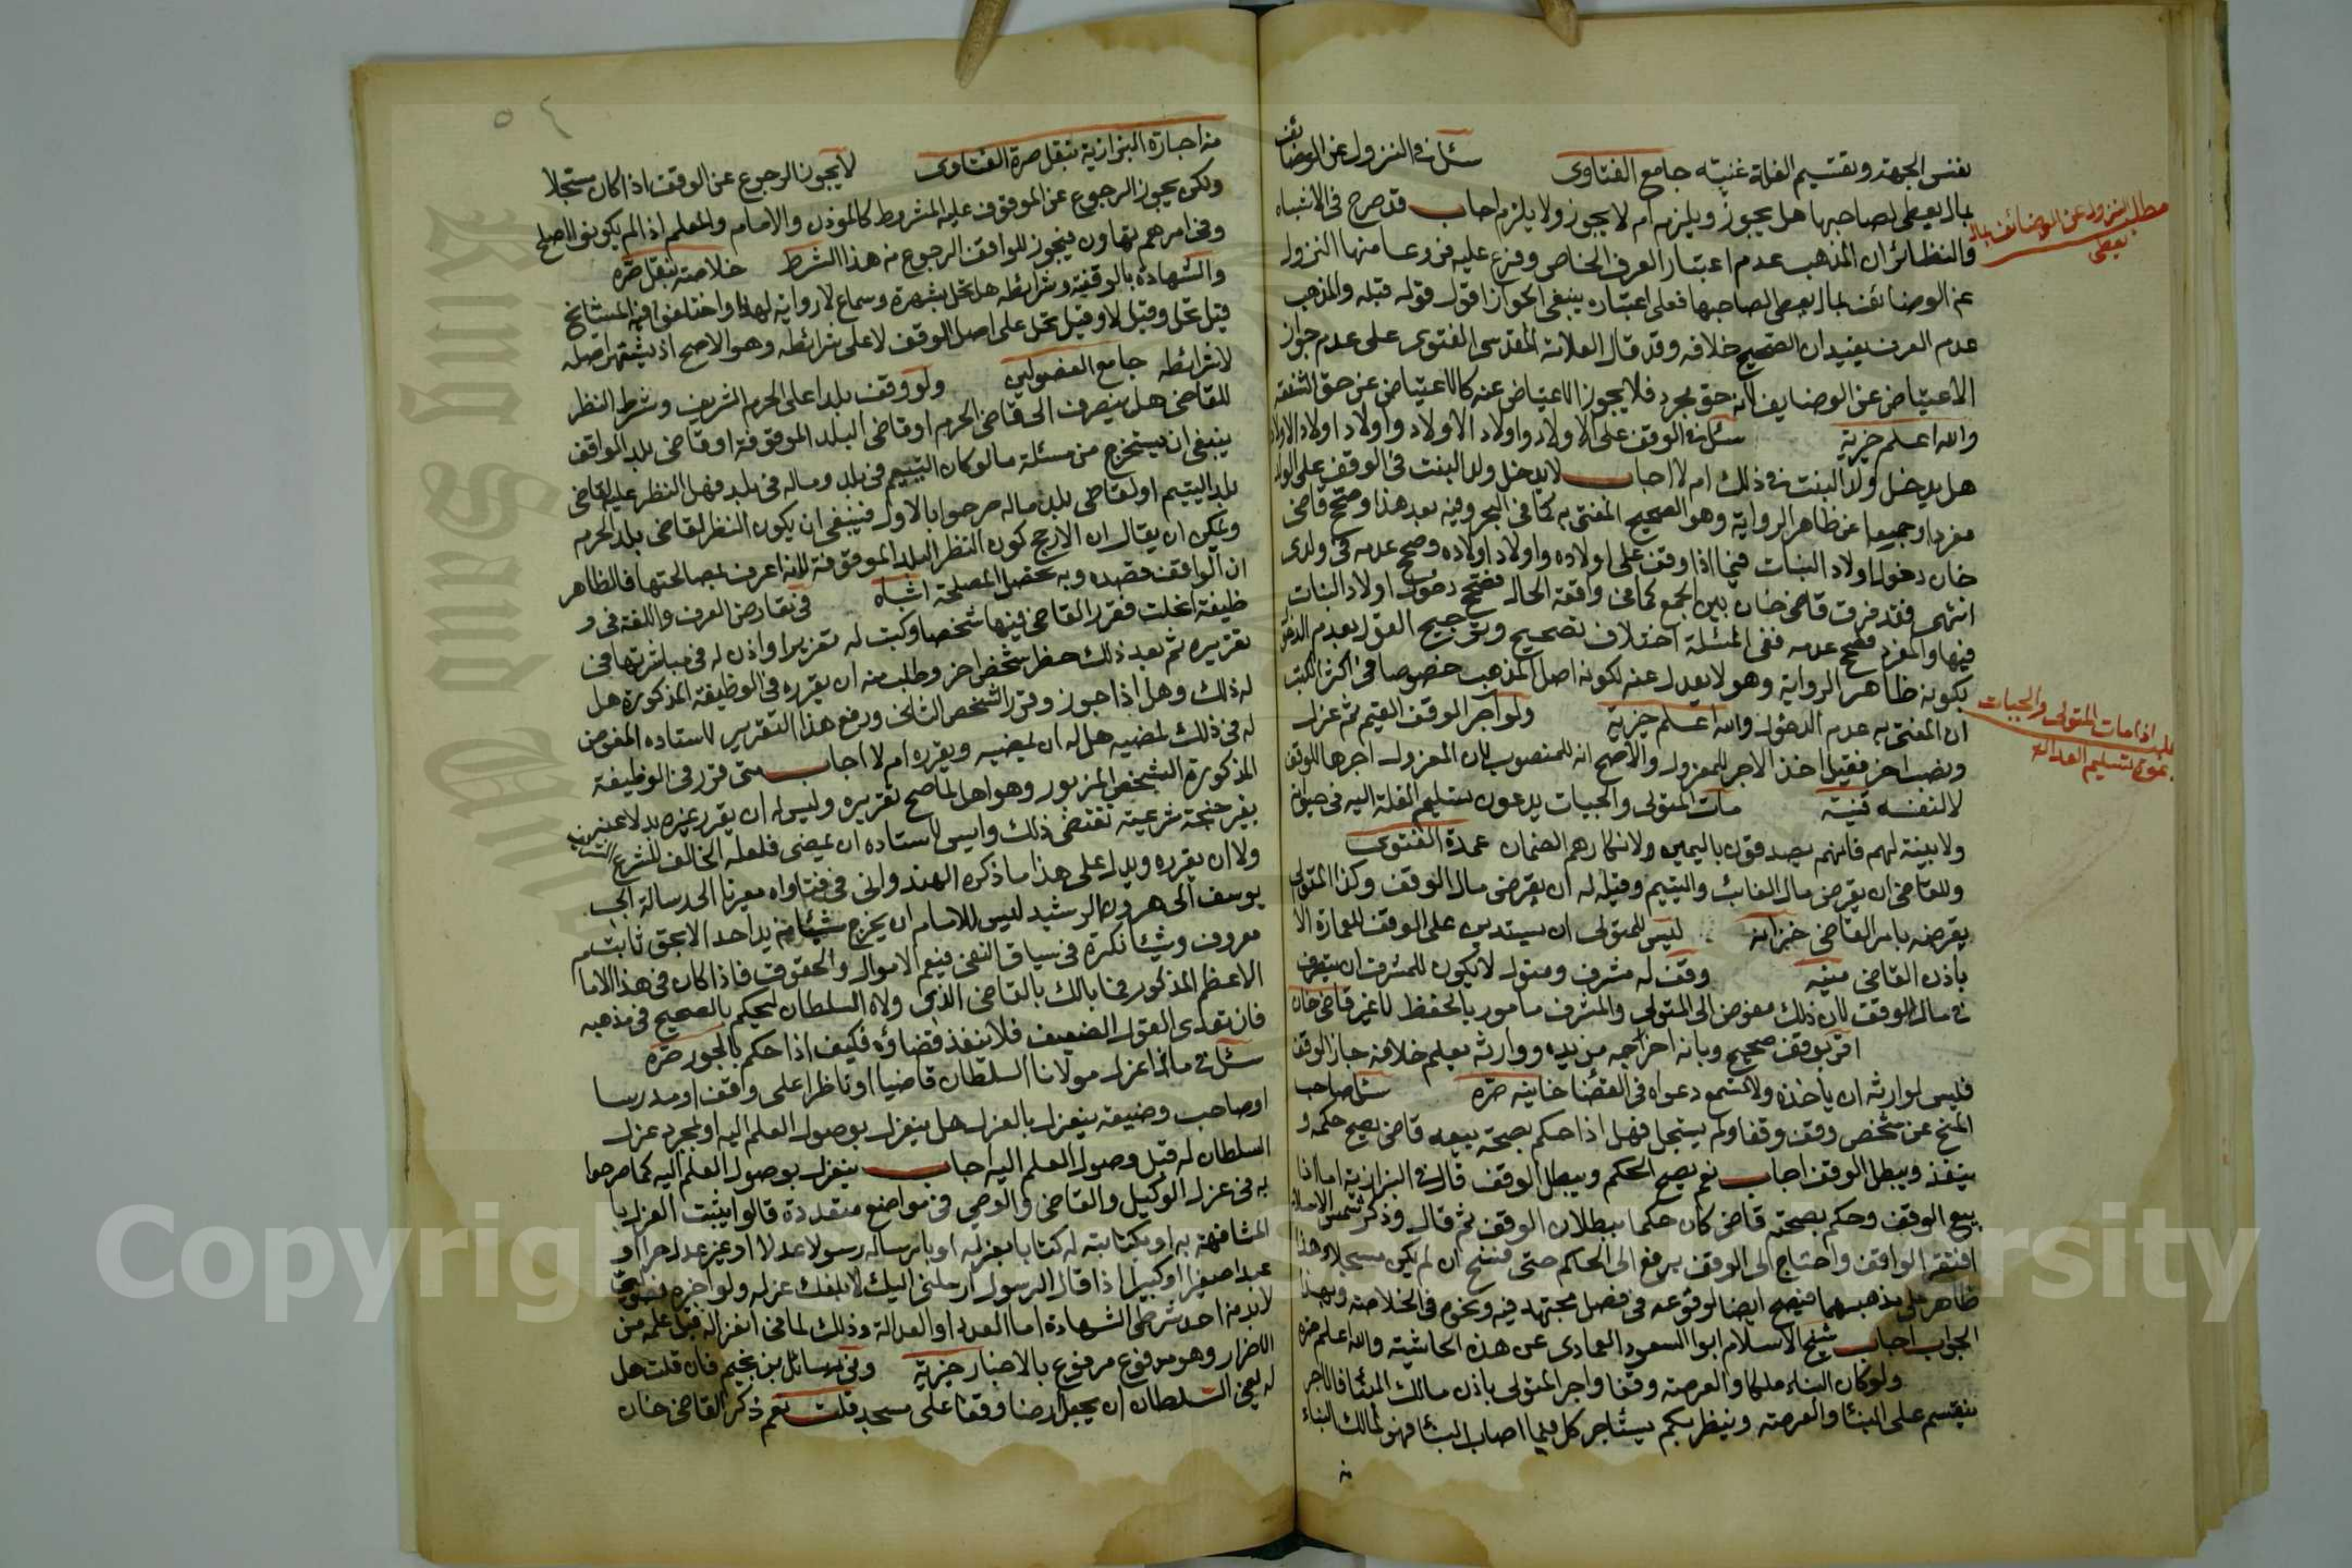 نفس الجهة وتقسيم الغلة غنيته جامع الفتاوى سئل في النزول عن الوضائف
بمال يعطى لصاحبها هل يجوز ويلزم ام لا يجوز ولا يلزم اجاب قد صرح فى الاشباه
والنظائر ان المذهب عدم اعتبار العرف الخاص وفرع عليه فروعا منها النزول
عن الوضائف بمال يعطى لصاحبها فعلى اعتباره ينبغى الجواز اقول قوله قبله والمذهب
عدم العرف يفيد ان الصحيح خلافه وقد قال العلامة المقدسى الفتوى على عدم جواز
الاعتياض عن الوضايف لانه حق مجرد فلا يجوز الاعتياض عنه كالاعتياض عن حق الشفعة
والله اعلم خيرية سئل في الوقف على الاولاد واولاد الاولاد واولاد اولاد الاولاد
هل يدخل ولد البنت في ذلك ام لا اجاب لا يدخل ولد البنت فى الوقف على الولد
مفردا وجميعا عن ظاهر الرواية وهو الصحيح المفتى به كما فى البحر وفيه بعد هذا وصحح قاضى
خان دخول اولاد البنات فيما اذا وقف على اولاده واولاد اولاده وصحح عدمه فى ولدى
انتهى فقد فرق قاضى خان بين الجمع كما فى واقعة الحال فصحح دخول اولاد البنات
فيها والمفرد فصحح عدمه ففى المسئلة اختلاف تصحيح وترجيح القول بعدم الدخول
بكونه ظاهر الرواية وهو لا يعدل عنه لكونه اصل المذهب خصوصا فى اكثر الكتب
ان المفتى به عدم الدخول والله اعلم خيرية ولو اجر الوقف القيم ثم عزل
ونصب اخر فقيل اخذ الاجر للمعزول والاصح انه للمنصوب لان المعزول اجرها للوقف
لا لنفسه قنية مات المتولى والجبات يدعون تسليم الغلة اليه فى حياته
ولا بينة لهم فانهم يصدقون باليمين ولانكارهم الضمان عمدة الفتوى
وللقاضى ان يقرض مال الغائب واليتيم وقيل له ان يقرض مال الوقف وكذا المتولى
يقرضه بامر القاضى خزانه ليس للمتولى ان يستدين على الوقف للعمارة الا
باذن القاضى منيه وقف له مشرف ومتول لا يكون للمشرف ان يتصرف
في مال الوقف لان ذلك مفوض الى المتولى والمشرف مامور بالحفظ لا غير قاضى خان
اقر بوقف صحيح وبانه اخرجه من يده ووارثه يعلم خلافه جاز الوقف
فليس لوارثه ان ياخذه ولا تسمع دعواه فى القضا خانيه صره سئل صاحب
المنح عن شخص وقف وقفا ولم يسجل فهل اذا حكم بصحة بيعه قاضى يصح حكمه و
ينفذ ويبطل الوقف اجاب نعم يصح الحكم ويبطل الوقف قال في البزازية اما اذا
بيع الوقف وحكم بصحته قاضى كان حكما ببطلان الوقف ثم قال وذكر شمس الاسلام
افتقر الواقف واحتاج الى الوقف يرفع الى الحاكم حتى فسخ ان لم يكن مسجلا وهذا
ظاهر على مذهبهما فيصح ايضا لوقوعه فى فصل مجتهد فيه ونحوه فى الخلاصة وبهذا
الجواب اجاب شيخ الاسلام ابو السعود العمادى عن هذه الحاشية والله اعلم صره
ولو كان البناء ملكا والعرصة وقفا واجر المتولى باذن مالك البنا فالاجر
ينقسم على البنا والعرصة وينظر بكم يستاجر كل فيما اصاب البنا فهو لمالك البناء
مطلب النزول عن الوضائف بمال
يعطى
مطلب اذا مات المتولى والجبات
يدعون تسليم الغلة اليه
٥٤
من اجارة البزازية بنقل صرة الفتاوى لا يجوز الرجوع عن الوقف اذا كان مسجلا
ولكن يجوز الرجوع عن الموقوف عليه المشروط كالموذن والامام والمعلم اذا لم يكونوا اصلح
وفى امرهم تهاون فيجوز للواقف الرجوع من هذا الشرط خلاصة بنقل صره
والشهادة بالوقفية وشرائطه هل تحل بشهرة وسماع لا رواية لهذا واختلفوا فيه المشائخ
قيل تحل وقيل لا وقيل تحل على اصل الوقف لا على شرائطه وهو الاصح اذ يشتهر اصله
لا شرائطه جامع الفصولين ولو وقف بلدا على الحرم الشريف وشرط النظر
للقاضى هل ينصرف الى قاضى الحرم او قاضى البلد الموقوفة او قاضى بلد الواقف
ينبغى ان يستخرج من مسئلة ما لو كان اليتيم فى بلد وماله فى بلد فهل النظر عليه لقاضى
بلد اليتيم او لقاضى بلد ماله صرحوا بالاول فينبغى ان يكون النظر لقاضى بلد الحرم
ويمكن ان يقال ان الارجح كون النظر البلد الموقوفة لانه اعرف بمصالحها فالظاهر
ان الواقف قصده وبه تحصل المصلحة اشباه فى تعارض العرف واللغة فى و
ظيفة اغلت فقرر القاضى فيها شخصا وكتب له تقريرا واذن له فى مباشرتها فى
تقريره ثم بعد ذلك حظر شخص اخر وطلب منه ان يقرره فى الوظيفة المذكورة هل
له ذلك وهل اذا جوز وقرر الشخص الثانى ورفع هذا التقرير لاستاده المفوض
له فى ذلك لمضيه هل له ان يمضيه ويقرره ام لا اجاب متى قرر فى الوظيفة
المذكورة الشخص المزبور وهو اهل لها صح تقريره وليس له ان يقرر غيره بدلا عنه
بغير جنحة شرعية تقتضى ذلك وليس لاستاده ان يمضى فلعله الخالف للشرع الشريف
ولا ان يقرره ويدل على هذا ما ذكره الهندوانى فى فتاواه معزيا الى رسالة ابى
يوسف الى هرون الرشيد ليس للامام ان يخرج شيئا من يد احد الا بحق ثابت
معروف وشيئا نكرة فى سياق النفى فيعم الاموال والحقوق فاذا كان فى هذا الامام
الاعظم المذكور فما بالك بالقاضى الذى ولاه السلطان ليحكم بالصحيح فى مذهبه
فان تعدى القول الضعيف فلا ينفذ قضاؤه فكيف اذا حكم بالجور صره
سئل في ما اذا عزل مولانا السلطان قاضيا او ناظرا على واقف او مدرسا
او صاحب وضيعة ينعزل بالعزل هل ينعزل بوصول العلم اليه او بمجرد عزل
السلطان له قبل وصول العلم اليه اجاب ينعزل بوصول العلم اليه كما صرحوا
به فى عزل الوكيل والقاضى والوصى فى مواضع متعددة قالوا يثبت العزل با
المشافهة به او بكتابته له كتابا بعزله او بارساله رسولا عدلا او غير عدل حرا او
عبدا صغيرا او كبيرا اذا قال الرسول ارسلنى اليك لابلغك عزله ولو اخره فضولى
لا بد من احد شرطى الشهادة اما العدد او العدالة وذلك لما فى انعزاله قبل علمه من
الاضرار وهو مدفوع مرفوع بالاخبار خيرية وفى رسائل بن نجيم فان قلت هل
له يعنى السلطان ان يجعل ارضا وقفا على مسجد قلت نعم ذكر القاضى خان